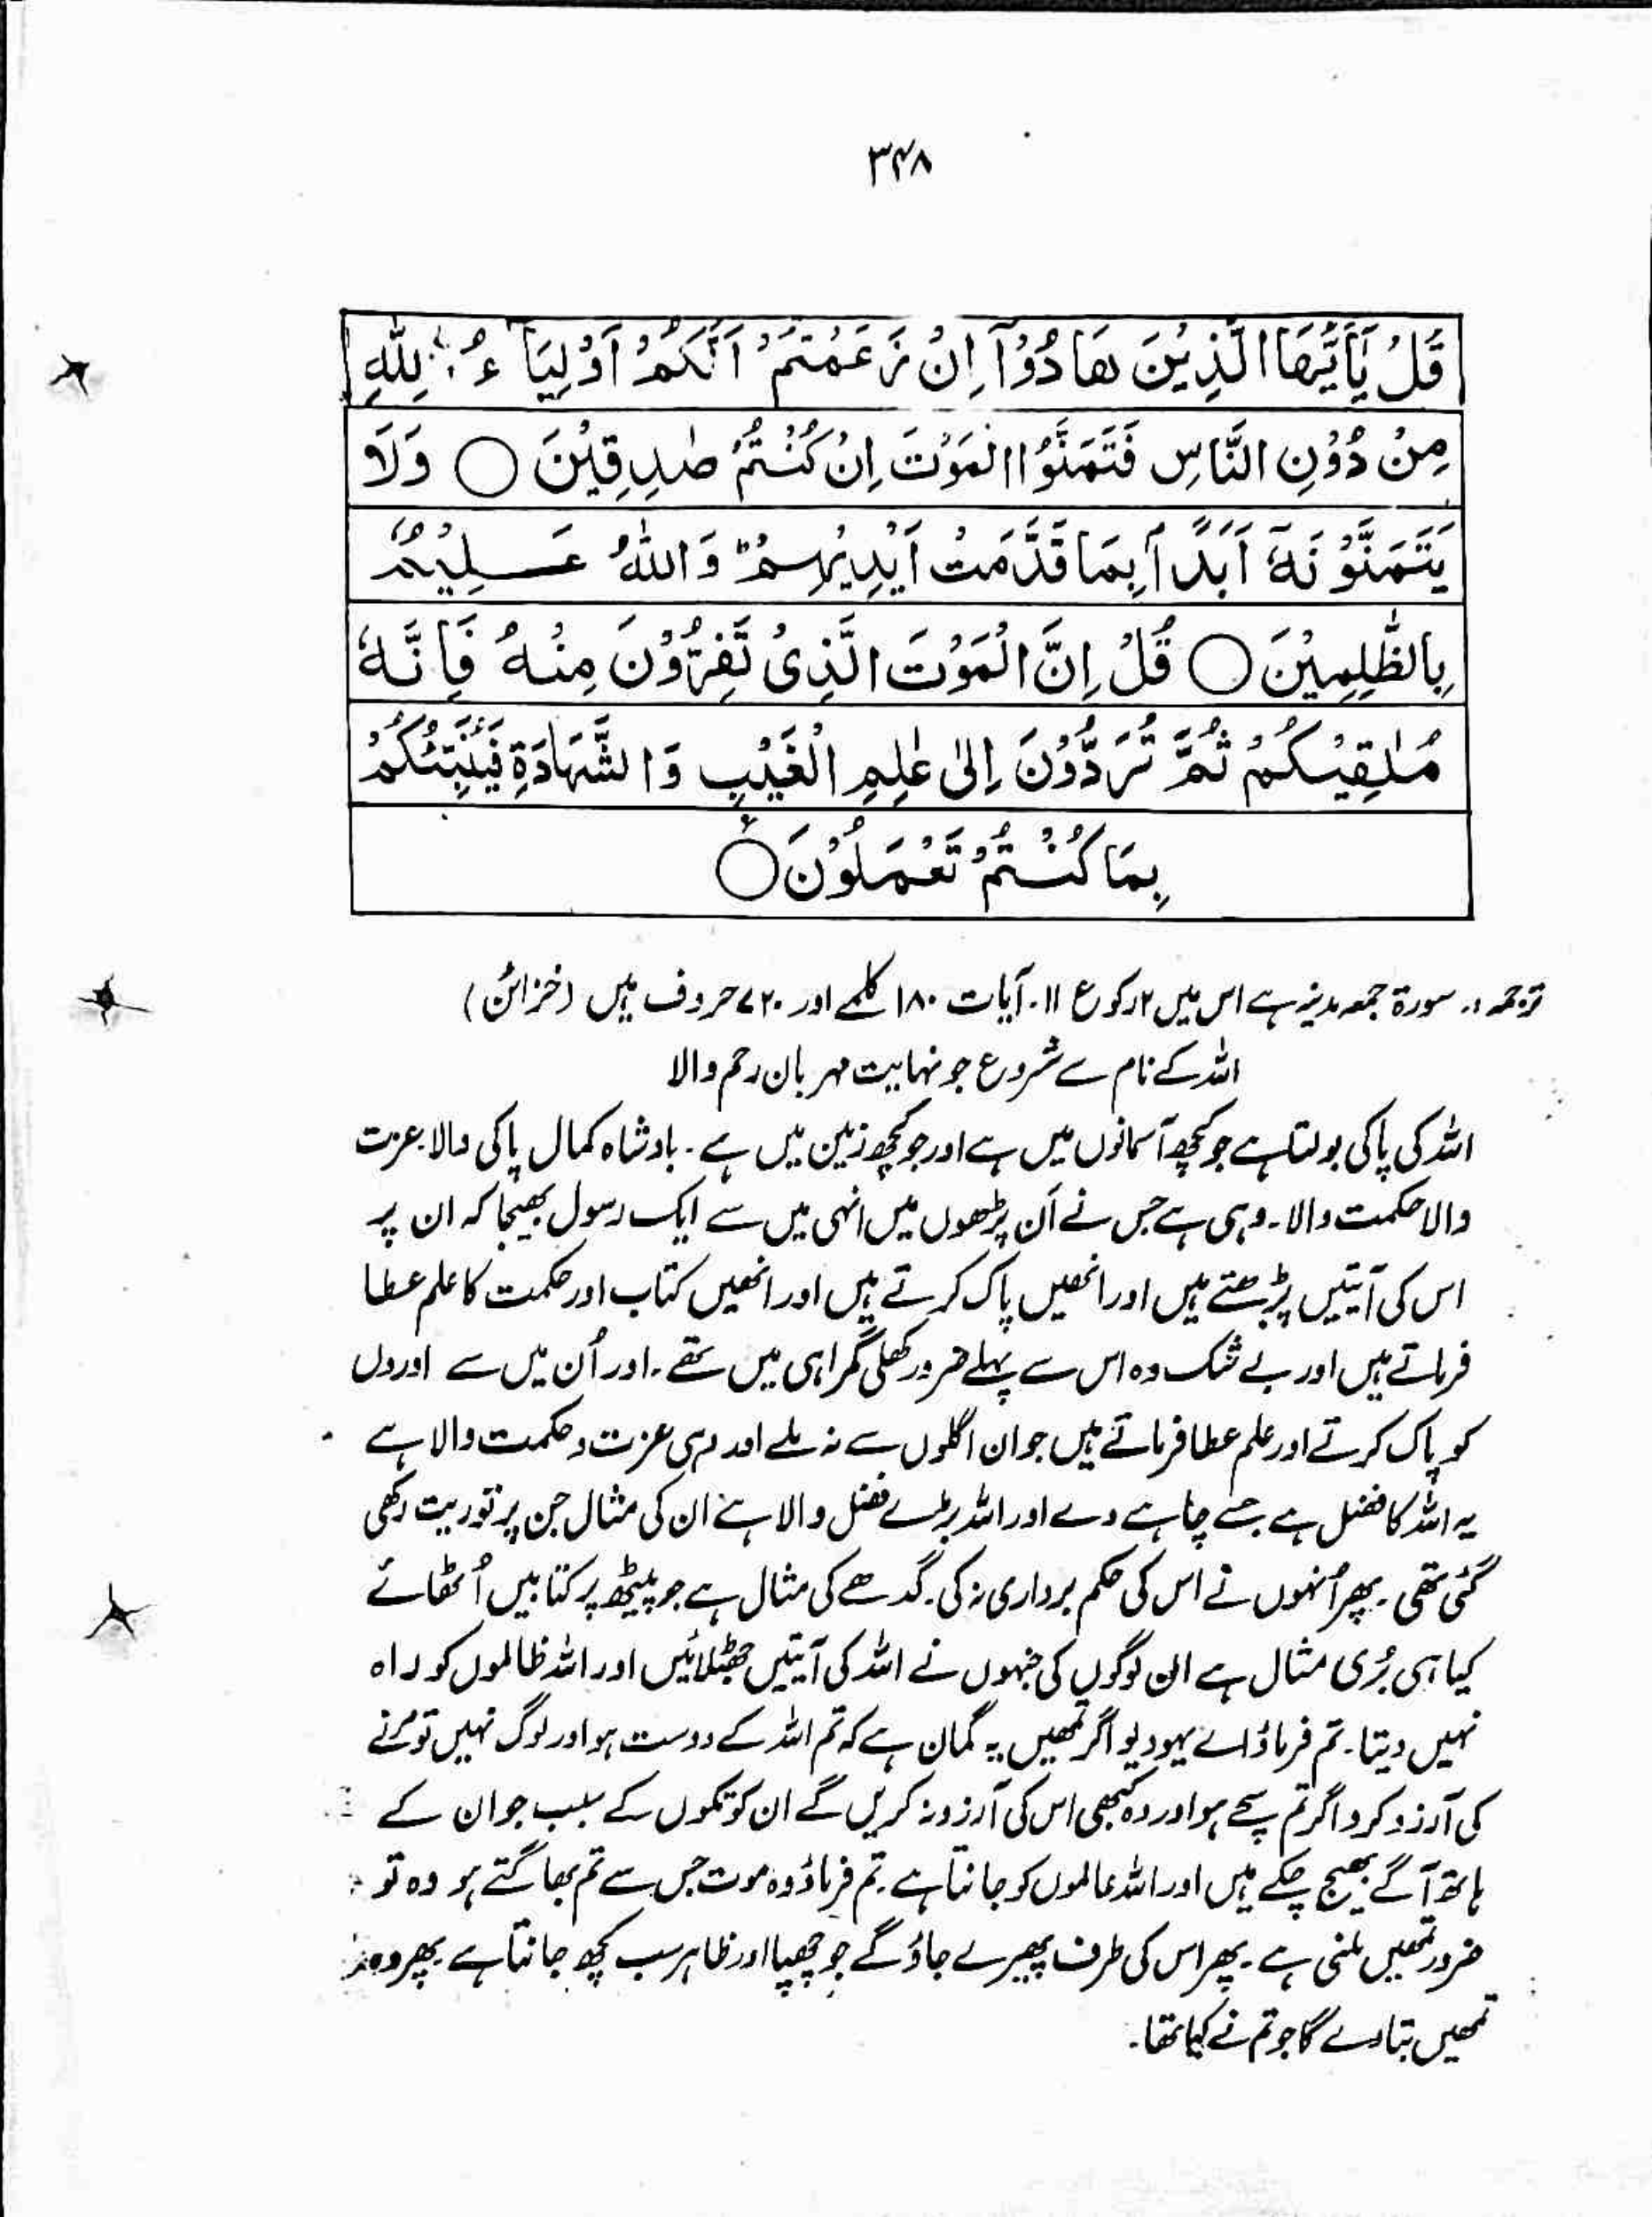 ۳۴۸
قُلْ يٰٓاَيُّهَا الَّذِيْنَ هَادُوْٓا اِنْ زَعَمْتُمْ اَنَّكُمْ اَوْلِيَآءُ لِلّٰهِ
مِنْ دُوْنِ النَّاسِ فَتَمَنَّوُا الْمَوْتَ اِنْ كُنْتُمْ صٰدِقِيْنَ ○ وَلَا
يَتَمَنَّوْنَهٗٓ اَبَدًاۢ بِمَا قَدَّمَتْ اَيْدِيْهِمْ ؕ وَاللّٰهُ عَلِيْمٌۢ
بِالظّٰلِمِيْنَ ○ قُلْ اِنَّ الْمَوْتَ الَّذِىْ تَفِرُّوْنَ مِنْهُ فَاِنَّهٗ
مُلٰقِيْكُمْ ثُمَّ تُرَدُّوْنَ اِلٰى عٰلِمِ الْغَيْبِ وَالشَّهَادَةِ فَيُنَبِّئُكُمْ
بِمَا كُنْتُمْ تَعْمَلُوْنَ ○
ترجمہ :۔ سورۃ جمعہ مدنیہ ہے اس میں ۲ رکوع ۱۱۔ آیات ۱۸۰ کلمے اور ۷۲۰ حروف ہیں (خزائن)
اللہ کے نام سے شروع جو نہایت مہربان رحم والا
اللہ کی پاکی بولتا ہے جو کچھ آسمانوں میں ہے اور جو کچھ زمین میں ہے۔ بادشاہ کمال پاکی والا عزت
والا حکمت والا۔ وہی ہے جس نے اَن پڑھوں میں انہی میں سے ایک رسول بھیجا کہ ان پر
اس کی آیتیں پڑھتے ہیں اور انھیں پاک کرتے ہیں اور انھیں کتاب اور حکمت کا علم عطا
فرماتے ہیں اور بے شک وہ اس سے پہلے ضرور کھلی گمراہی میں تھے۔ اور اُن میں سے اوروں
کو پاک کرتے اور علم عطا فرماتے ہیں جو ان اگلوں سے نہ ملے اور وہی عزت و حکمت والا ہے
یہ اللہ کا فضل ہے جسے چاہے دے اور اللہ بڑے فضل والا ہے ان کی مثال جن پر توریت رکھی
گئی تھی۔ پھر اُنہوں نے اس کی حکم برداری نہ کی۔ گدھے کی مثال ہے جو پیٹھ پر کتابیں اُٹھائے
کیا ہی بُری مثال ہے ان لوگوں کی جنہوں نے اللہ کی آیتیں جھٹلائیں اور اللہ ظالموں کو راہ
نہیں دیتا۔ تم فرماؤ اے یہودیو اگر تمھیں یہ گمان ہے کہ تم اللہ کے دوست ہو اور لوگ نہیں تو مرنے
کی آرزو کرو اگر تم سچے ہو اور وہ کبھی اس کی آرزو نہ کریں گے ان کوتکوں کے سبب جو ان کے
ہاتھ آگے بھیج چکے ہیں اور اللہ ظالموں کو جانتا ہے۔ تم فرماؤ وہ موت جس سے تم بھاگتے ہو وہ تو
ضرور تمھیں ملنی ہے۔ پھر اس کی طرف پھیرے جاؤ گے جو چھپا اور ظاہر سب کچھ جانتا ہے پھر وہ
تمھیں بتا دے گا جو تم نے کیا تھا۔